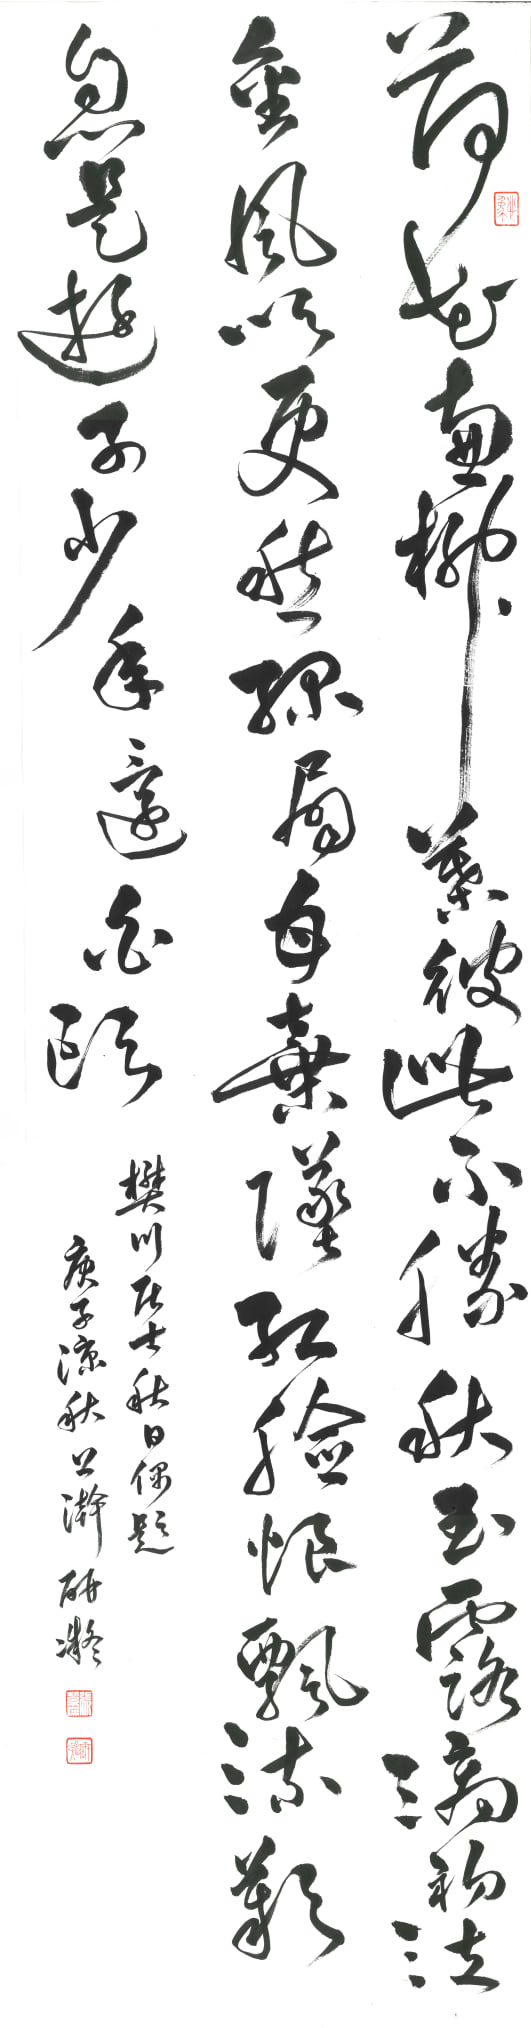 荷花兼柳葉彼此不勝秋玉露滴初泣
金風吹更愁綠眉甘棄墜紅臉恨飄流歎
息是遊子少年還白頭
樊川居士秋日偶題
庚子涼秋上澣研凝